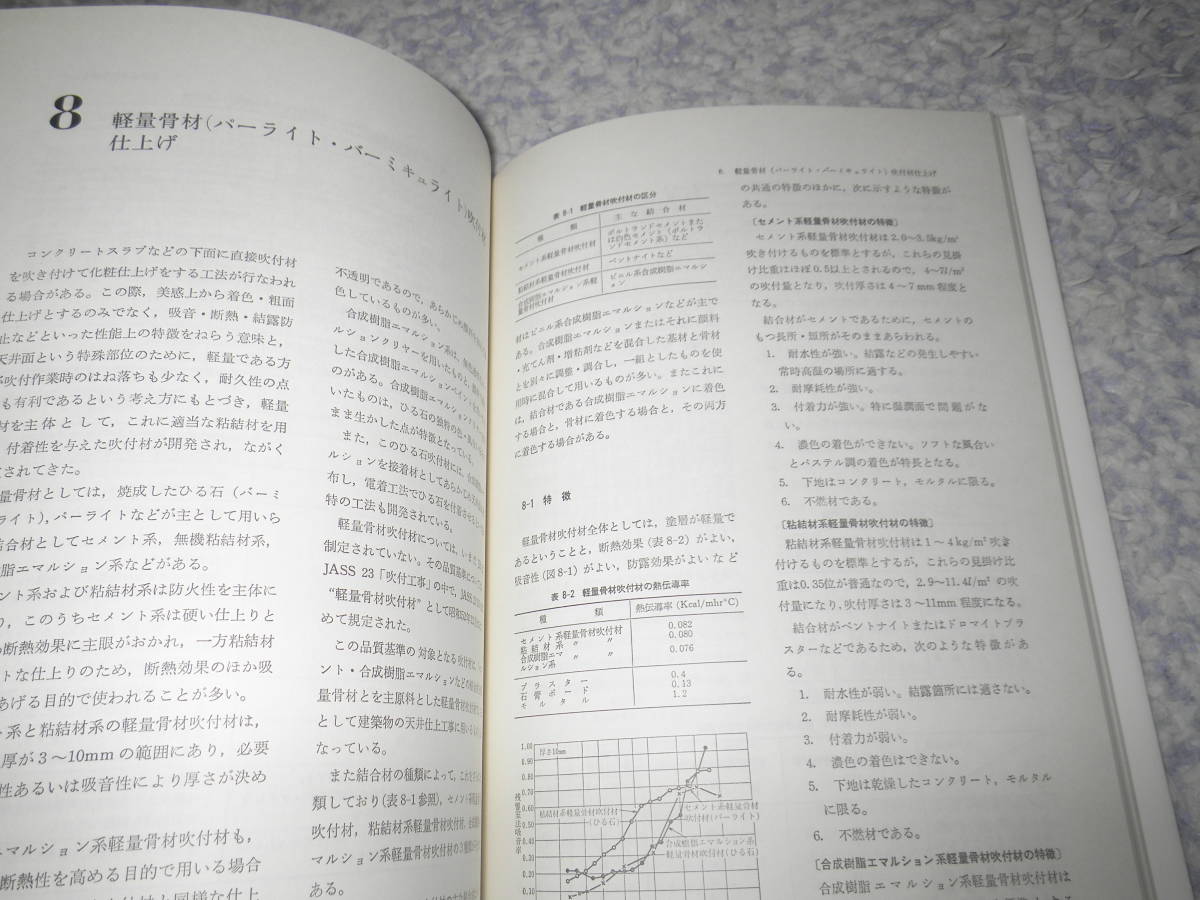 8
軽量骨材(パーライト・バーミキュライト)吹付材
仕上げ
コンクリートスラブなどの下面に直接吹付材
を吹き付けて化粧仕上げをする工法が行なわれ
る場合がある。この際，美感上から着色・粗面
仕上げとするのみでなく，吸音・断熱・結露防
止などといった性能上の特徴をねらう意味と，
天井面という特殊部位のために，軽量である方
が吹付作業時のはね落ちも少なく，耐久性の点
も有利であるという考え方にもとづき，軽量
材を主体として，これに適当な粘結材を用
付着性を与えた吹付材が開発され，ながく
されてきた。
量骨材としては，焼成したひる石（バーミ
ライト），パーライトなどが主として用いら
結合材としてセメント系，無機粘結材系，
脂エマルション系などがある。
ント系および粘結材系は防火性を主体に
り，このうちセメント系は硬い仕上りと
断熱効果に主眼がおかれ，一方粘結材
トな仕上りのため，断熱効果のほか吸
あげる目的で使われることが多い。
ト系と粘結材系の軽量骨材吹付材は，
厚が3～10mmの範囲にあり，必要
性あるいは吸音性により厚さが決め
エマルション系軽量骨材吹付材も，
断熱性を高める目的で用いる場合
不透明であるので，あらかじめ
色しているものが多い。
合成樹脂エマルション系は，
ルションクリヤーを用いたものと，
した合成樹脂エマルションペイン
のがある。合成樹脂エマルション
いたものは，ひる石の独特の色
まま生かした点が特徴となっている。
また，このひる石吹付材には，
ルションを接着材としてあらかじめ
布し，電着工法でひる石を付着させる
特の工法も開発されている。
軽量骨材吹付材については，いまだ
制定されていない。その品質基準については
JASS 23「吹付工事」の中で，JASS
“軽量骨材吹付材”として昭和
めて規定された。
この品質基準の対象となる吹付材は，
ント・合成樹脂エマルションなどの結合
量骨材とを主原料とした軽量骨材吹付
として建築物の天井仕上工事に用いる
なっている。
また結合材の種類によって，これを
類しており(表8-1参照)，セメント系
吹付材，粘結材系軽量骨材吹付材，合成
マルション系軽量骨材吹付材の3種
ある。
表 8-1 軽量骨材吹付材の区分
種類 主な結合材
セメント系軽量骨材吹付材 ポルトランドセメントまた
は白色セメント（ポルトラ
ンドセメント系）など
粘結材系軽量骨材吹付材 ベントナイトなど
合成樹脂エマルション系軽
量骨材吹付材 ビニル系合成樹脂エマルシ
ョン
材はビニル系合成樹脂エマルションなどが主で
ある。合成樹脂エマルションまたはそれに顔料
・充てん剤・増粘剤などを混合した基材と骨材
とを別々に調整・調合し，一組としたものを使
用時に混合して用いるものが多い。またこれに
は，結合材である合成樹脂エマルションに着色
する場合と，骨材に着色する場合と，その両方
に着色する場合がある。
8-1 特徴
軽量骨材吹付材全体としては，塗層が軽量で
あるということと，断熱効果（表8-2）がよい，
吸音性（図8-1）がよい，防露効果がよいなど
表 8-2 軽量骨材吹付材の熱伝導率
種類 熱伝導率 (Kcal/mhr°C)
セメント系軽量骨材吹付材 0.082
粘結材系 〃 〃 0.080
合成樹脂エマ
ルション系 〃 〃 0.076
プラスター 0.4
石膏ボード 0.13
モルタル 1.2
残響室法吸音率
1.00
0.90
0.80
0.70
0.60
0.50
0.40
0.30
0.20
0.10
厚さ10mm
粘結材系軽量骨材吹付材
(ひる石)
セメント系軽量骨材
吹付材(パーライト)
合成樹脂エマルション系
軽量骨材吹付材(ひる石)
6. 軽量骨材（パーライト・バーミキュライト）吹付材仕上げ
の共通の特徴のほかに，次に示すような特徴が
ある。
〔セメント系軽量骨材吹付材の特徴〕
セメント系軽量骨材吹付材は2.0～3.5kg/m²
吹き付けるものを標準とするが，これらの見掛
け比重はほぼ0.5以上とされるので，4～7l/m²
の吹付量となり，吹付厚さは4～7mm程度と
なる。
結合材がセメントであるために，セメントの
もつ長所・短所がそのままあらわれる。
1. 耐水性が強い。結露などの発生しやすい
常時高湿の場所に適する。
2. 耐摩耗性が強い。
3. 付着力が強い。特に湿潤面で問題がな
い。
4. 濃色の着色ができない。ソフトな風合い
とパステル調の着色が特長となる。
5. 下地はコンクリート，モルタルに限る。
6. 不燃材である。
〔粘結材系軽量骨材吹付材の特徴〕
粘結材系軽量骨材吹付材は1～4kg/m²吹き
付けるものを標準とするが，これらの見掛け比
重は0.35位が普通なので，2.9～11.4l/m²の吹
付量になり，吹付厚さは3～11mm程度になる。
結合材がベントナイトまたはドロマイトプラ
スターなどであるため，次のような特徴があ
る。
1. 耐水性が弱い。結露箇所には適さない。
2. 耐摩耗性が弱い。
3. 付着力が弱い。
4. 濃色の着色はできない。
5. 下地は乾燥したコンクリート，モルタル
に限る。
6. 不燃材である。
〔合成樹脂エマルション系軽量骨材吹付材の特徴〕
合成樹脂エマルション系軽量骨材吹付材は